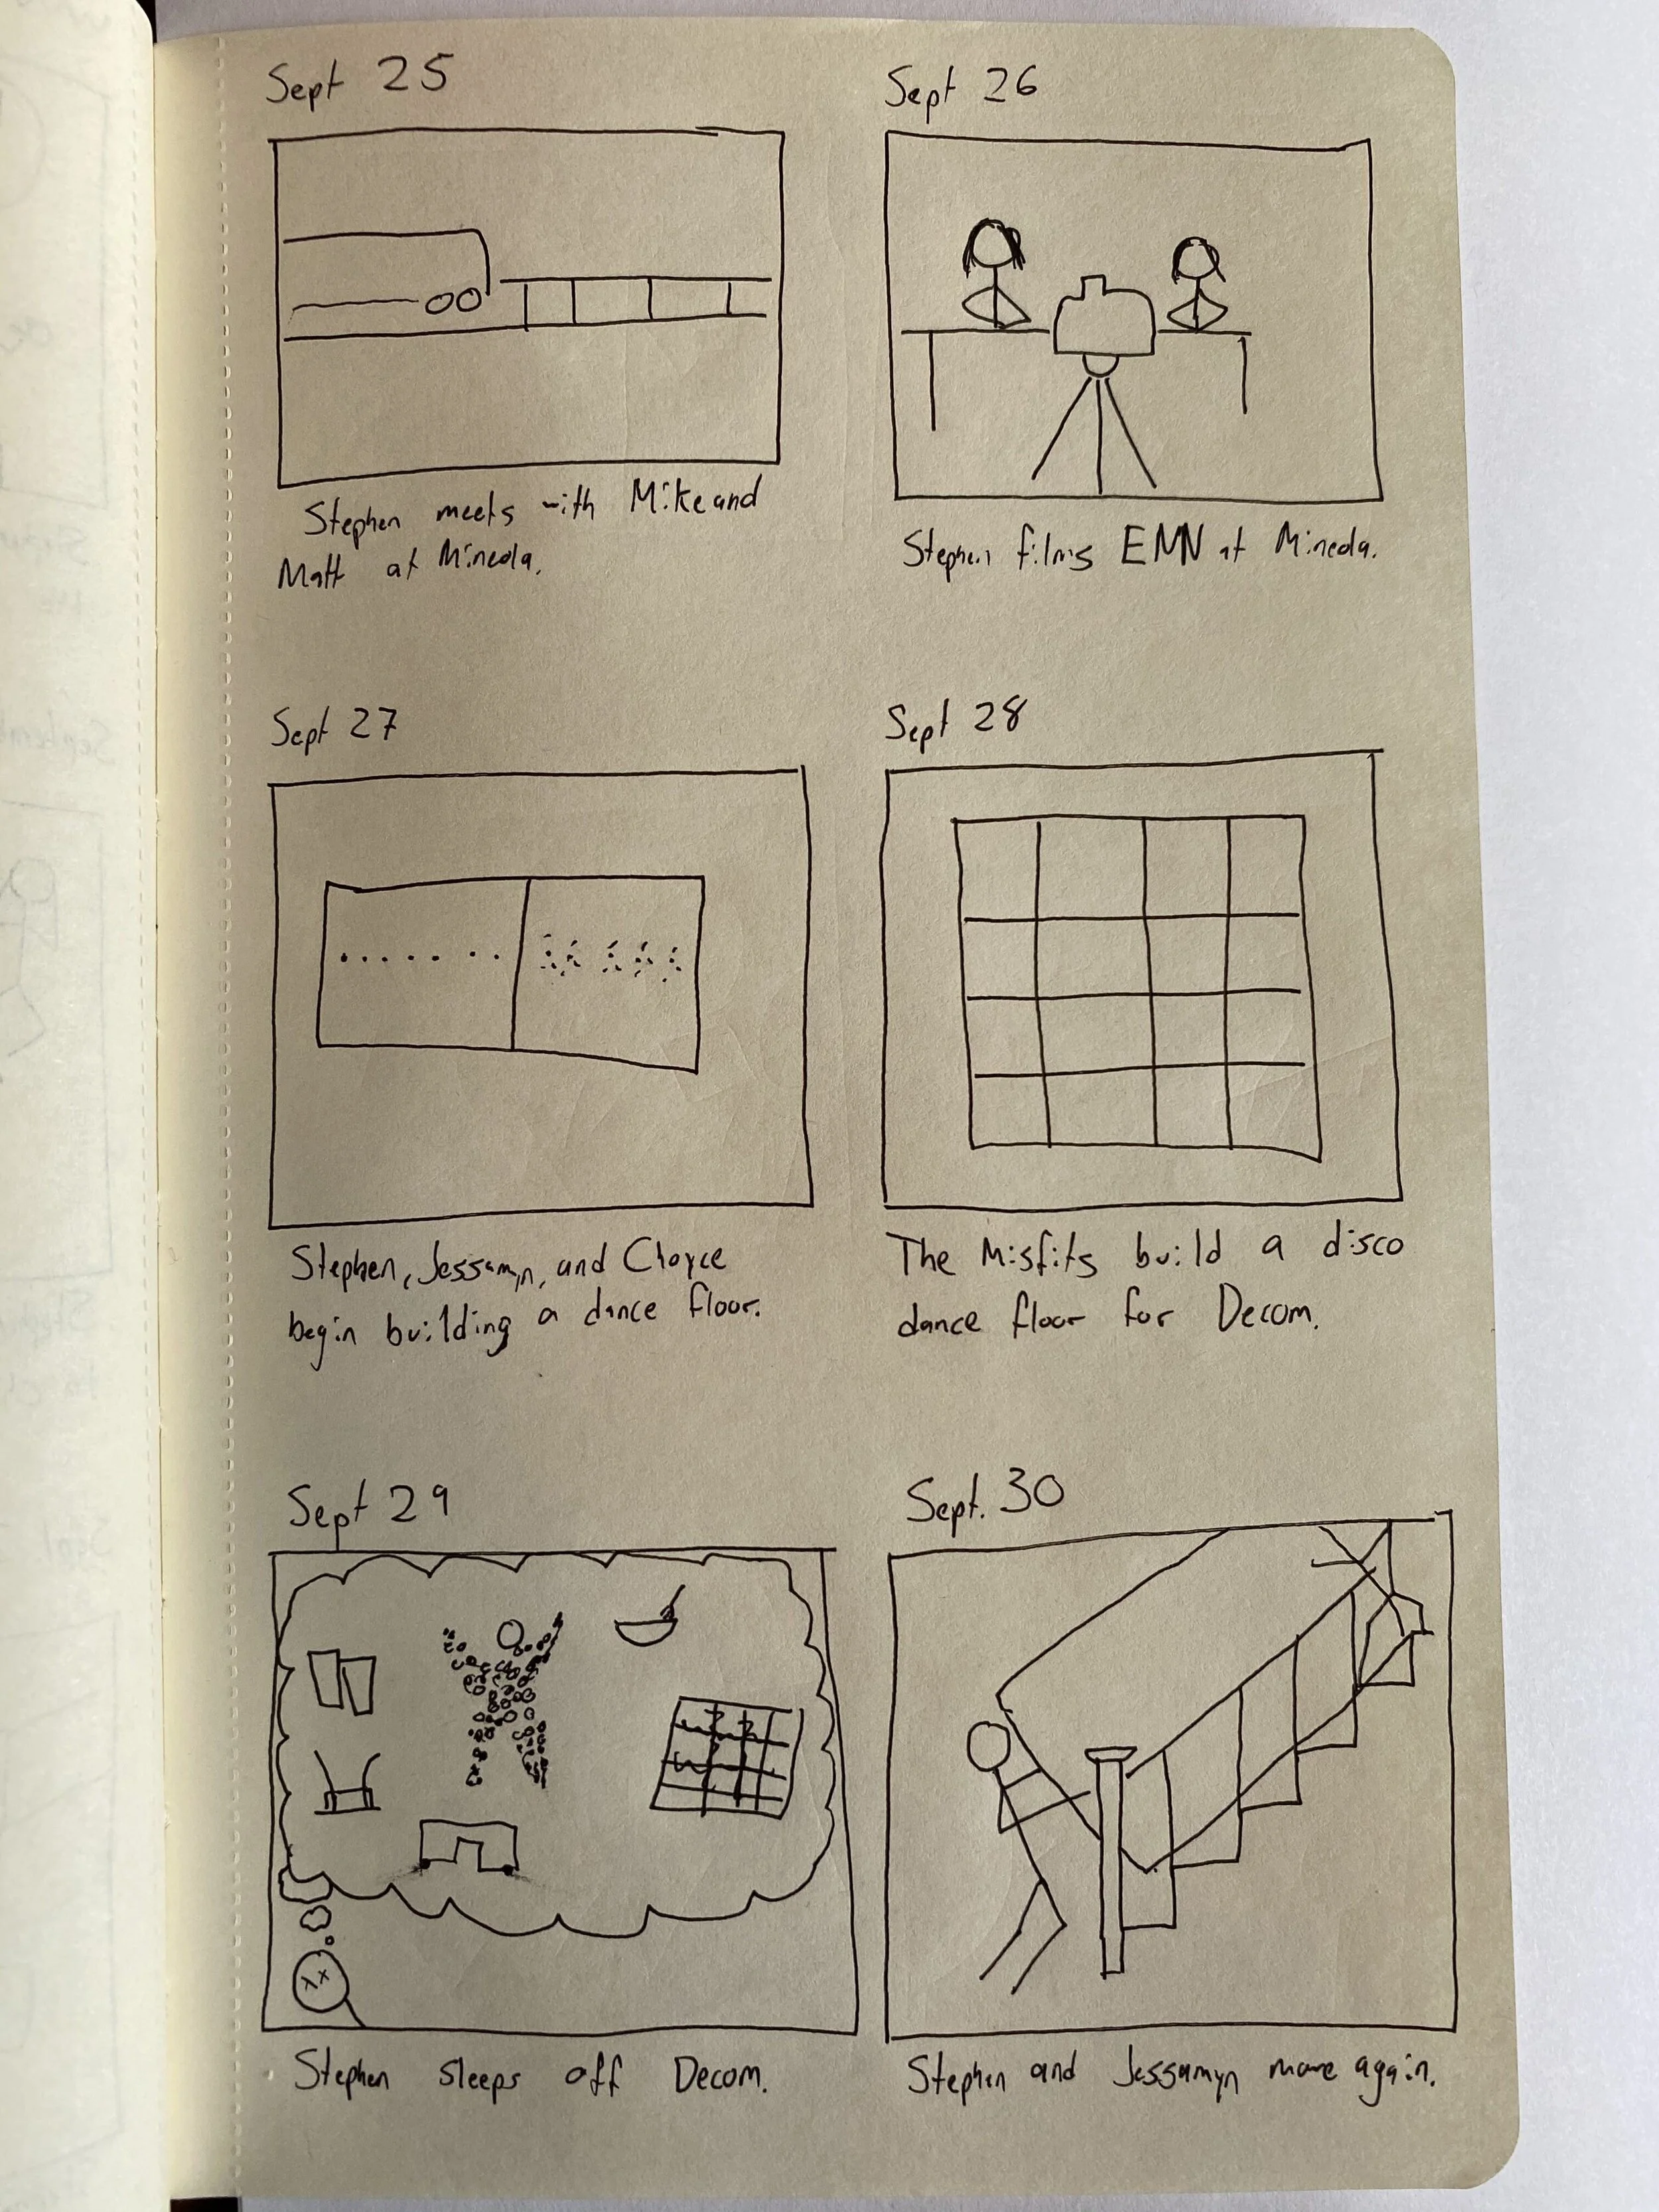 Sept 25
Stephen meets with Mike and
Matt at Mineola.
Sept 26
Stephen films EMN at Mineola.
Sept 27
Stephen, Jessamyn, and Choyce
begin building a dance floor.
Sept 28
The Misfits build a disco
dance floor for Decom.
Sept 29
Stephen sleeps off Decom.
Sept. 30
Stephen and Jessamyn move again.